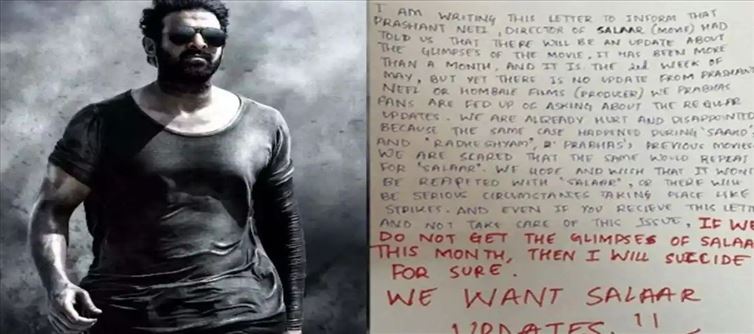 I AM WRITING THIS LETTER TO INFORM THAT
PRASHANT NEEL, DIRECTOR OF SALAAR (MOVIE) HAD
TOLD US THAT THERE WILL BE AN UPDATE ABOUT
THE GLIMPSES OF THE MOVIE, IT HAS BEEN MORE
THAN A MONTH, AND IT IS THE 2nd WEEK OF
MAY, BUT YET THERE IS NO UPDATE FROM PRASHANT
NEEL OR HOMBALE FILMS (PRODUCER) WE PRABHAS
FANS ARE FED UP OF ASKING ABOUT THE REGULAR
UPDATES. WE ARE ALREADY HURT AND DISAPPOINTED
BECAUSE THE SAME CASE HAPPENED DURING "SAAHO"
AND "RADHESHYAM", PRABHAS'S PREVIOUS MOVIES
WE ARE SCARED THAT THE SAME WOULD REPEAT
FOR "SALAAR". WE HOPE AND WISH THAT IT WONT
BE REAPETED WITH "SALAAR", OR THERE WILL
BE SERIOUS CIRCUMSTANCES TAKING PLACE LIKE
STRIKES. AND EVEN IF YOU RECIEVE THIS LETTE
AND NOT TAKE CARE OF THIS ISSUE, IF WE
DO NOT GET THE GLIMPSES OF SALAA
THIS MONTH, THEN I WILL SUICIDE
FOR SURE.
WE WANT SALAAR
UPDATES. !!